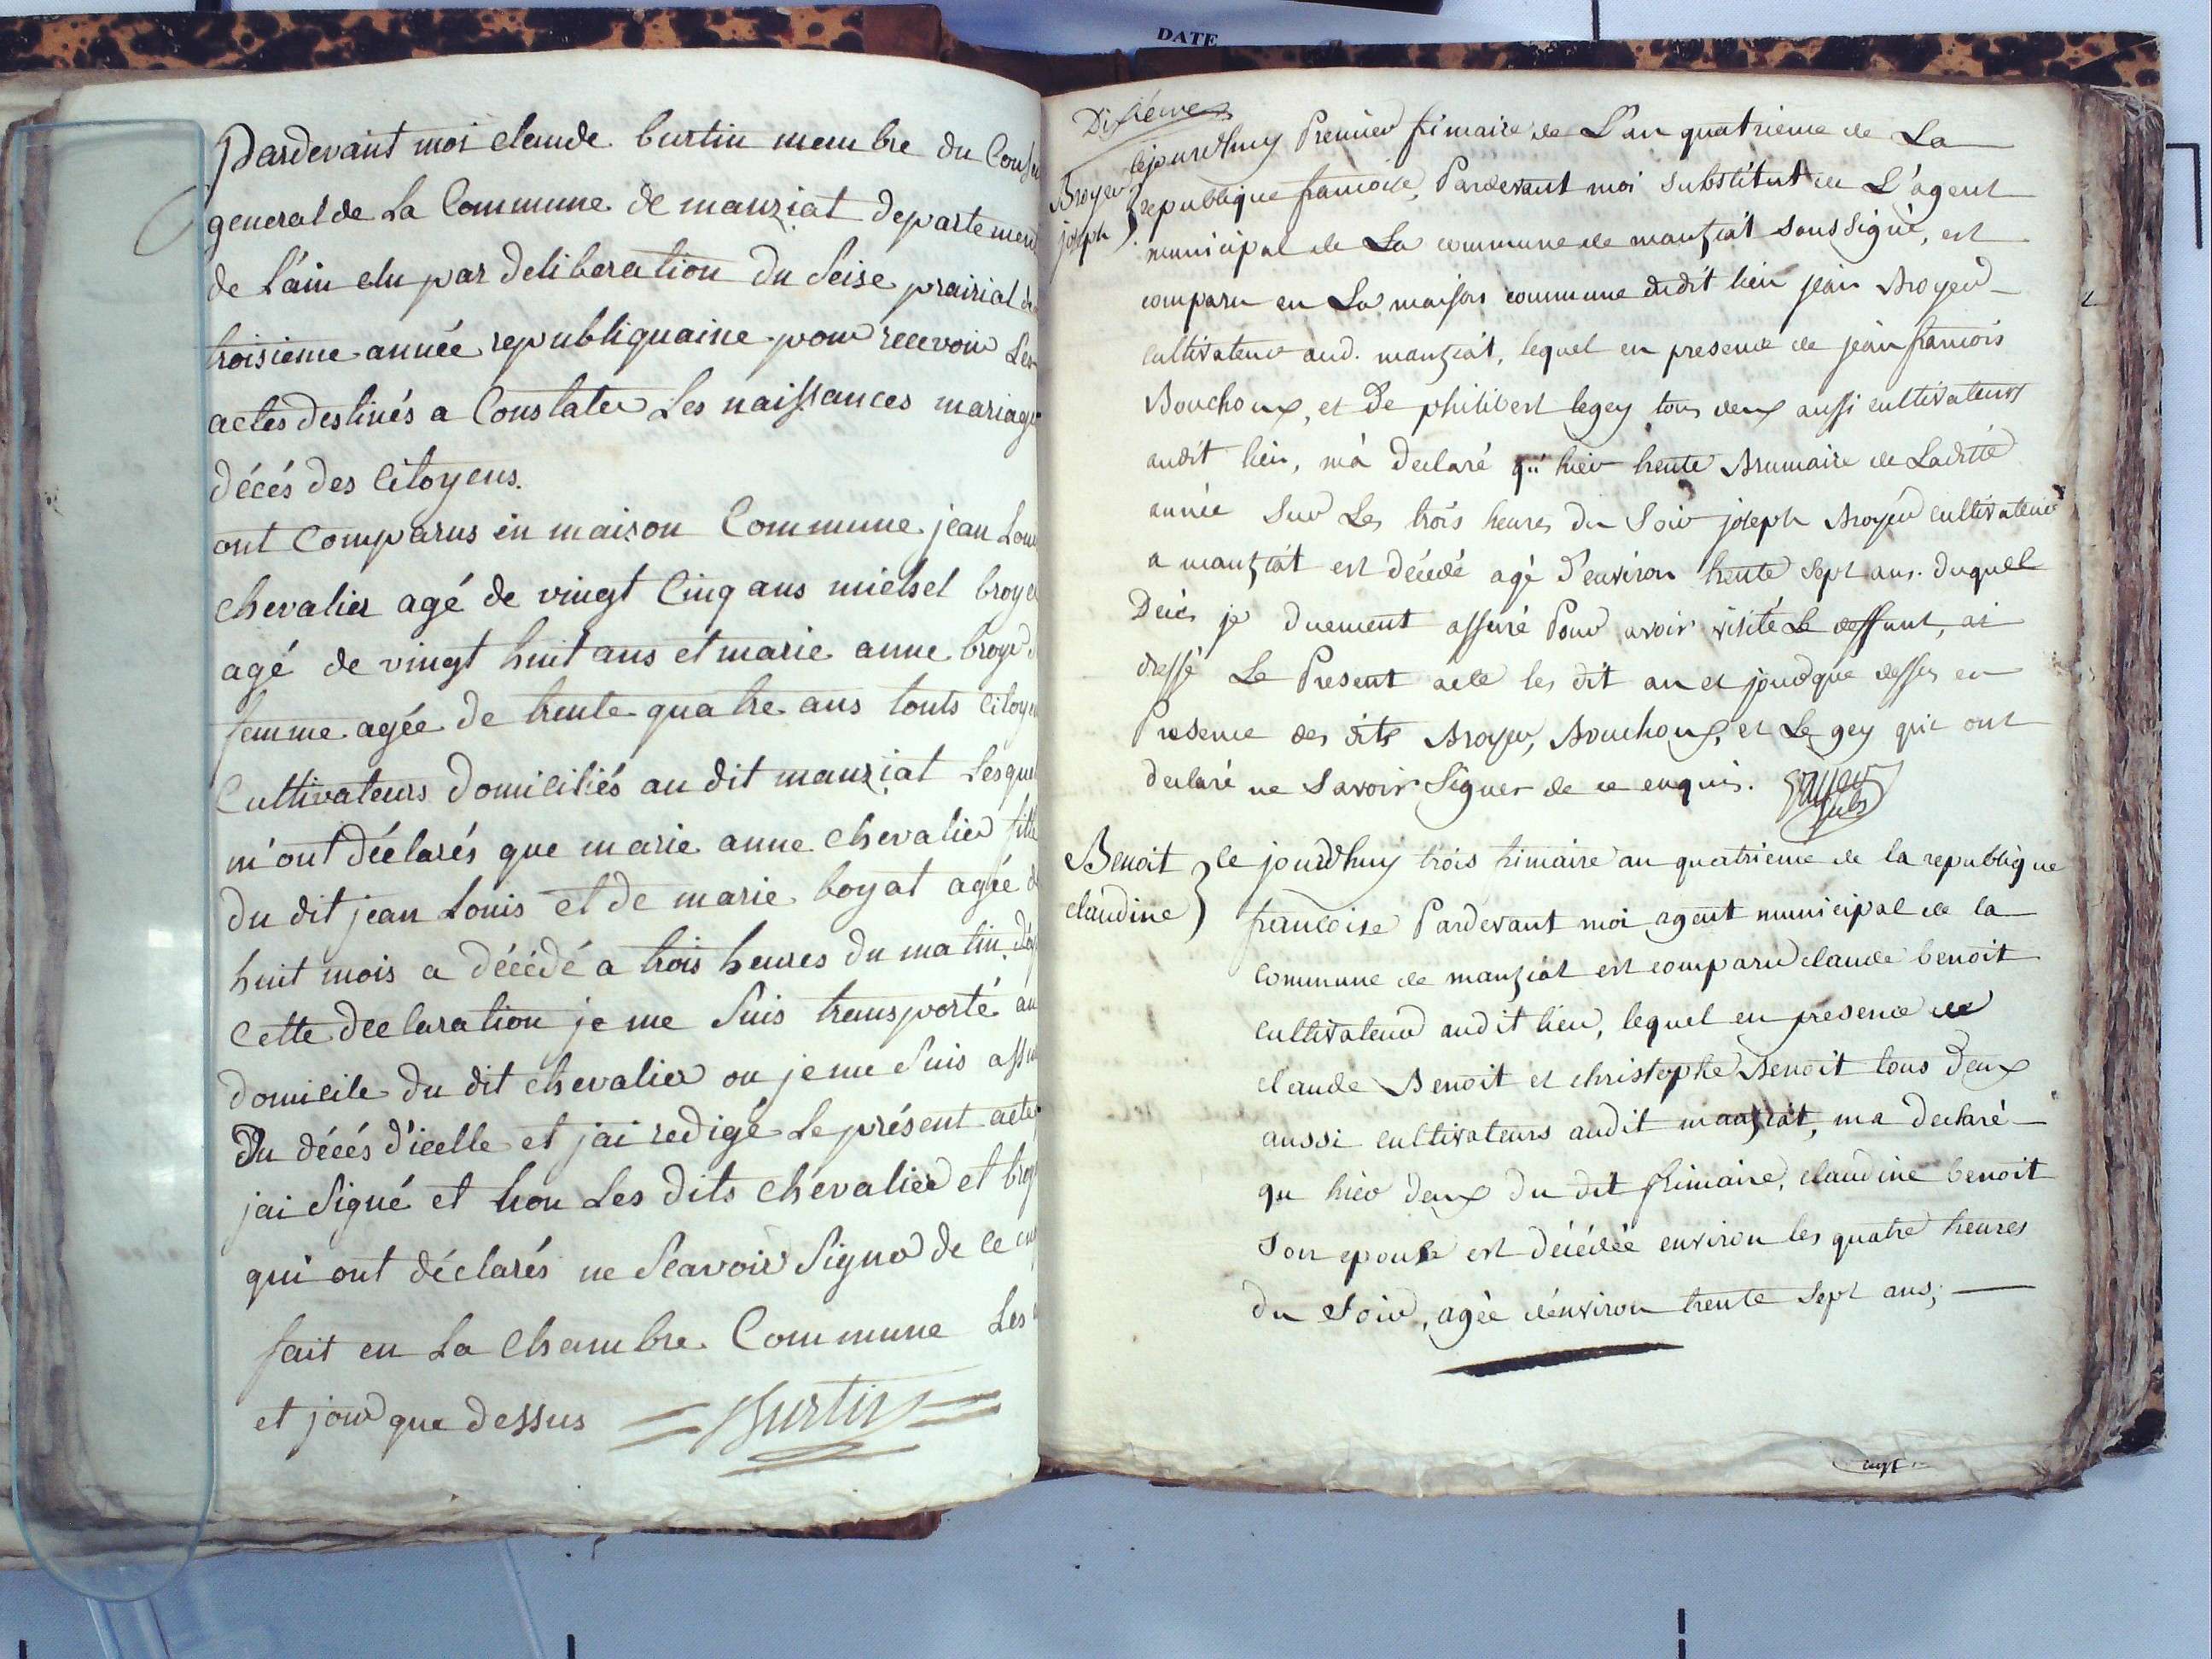 DATE
Pardevant moi claude burtin membre du Conse
general de La Commune de manziat departemen
de l'ain elu par deliberation du Seise prairial de
troisieme année republiquaine pour recevoir Les
actes destinés a Constater Les naissances mariage
décés des Citoyens.
ont Comparus en maison Commune jean Loui
chevalier agé de vingt Cinq ans michel broye
agé de vingt huit ans et marie anne broyer
femme agée de trente quatre ans touts Citoye
Cultivateurs domiciliés au dit manziat Lesquel
m'ont déclarés que marie anne chevalier fille
du dit jean Louis et de marie boyat agée d
huit mois a décédé a trois heures du matin
Cette declaration je me Suis transporté au
domicile du dit chevalier ou je me Suis assu
Du décés d'icelle et j'ai redigé Le présent acte
j'ai Signé et non Les dits chevalier et broy
qui ont déclarés ne Scavoir Signer de ce en
fait en La Chambre Commune Les
et jour que dessus Burtin
Broyer
joseph
cejourdhuy Premier frimaire de L'an quatrieme de La
republique francoise, Pardevant moi substitut de L'agent
municipal de La commune de manziat soussigné, est
comparu en La maison commune dudit lieu jean Broyer
cultivateur aud. manziat, lequel en presence de jean francois
Bouchoux, et de philibert legey tous deux aussi cultivateurs
audit lieu, m'a declaré qu'hier trente Brumaire de Laditte
année Sur Les trois heures du Soir joseph Broyer cultivateur
a manziat est décédé agé d'environ trente sept ans. duquel
Décés je duement assuré Pour avoir visité Le deffunt, ai
dressé Le Present acte les dit an et jour que dessus en
Presence des dits Broyer, Bouchoux, et Legey qui ont
declaré ne Savoir Signer de ce enquis.
Benoit
claudine
le jourdhuy trois frimaire an quatrieme de la republique
francoise Pardevant moi agent municipal de la
commune de manziat est comparu claude benoit
cultivateur audit lieu, lequel en presence de
claude Benoit et christophe Benoit tous deux
aussi cultivateurs audit manziat, ma declaré
qu hier deux du dit frimaire, claudine benoit
Son epouse est décédée environ les quatre heures
du Soir, agée d'environ trente sept ans;